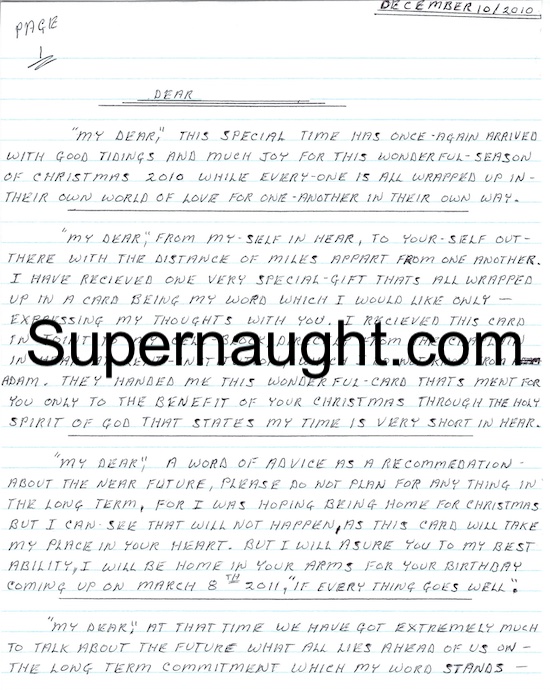 DECEMBER 10/2010
PAGE
1
DEAR
"MY DEAR," THIS SPECIAL TIME HAS ONCE-AGAIN ARRIVED
WITH GOOD TIDINGS AND MUCH JOY FOR THIS WONDERFUL-SEASON
OF CHRISTMAS 2010 WHILE EVERY-ONE IS ALL WRAPPED UP IN-
THEIR OWN WORLD OF LOVE FOR ONE-ANOTHER IN THEIR OWN WAY.
"MY DEAR", FROM MY-SELF IN HEAR, TO YOUR-SELF OUT-
THERE WITH THE DISTANCE OF MILES APPART FROM ONE ANOTHER.
I HAVE RECIEVED ONE VERY SPECIAL-GIFT THATS ALL WRAPPED
UP IN A CARD BEING MY WORD WHICH I WOULD LIKE ONLY —
EXPRESSING MY THOUGHTS WITH YOU. I RECIEVED THIS CARD
Supernaught.com
ADAM. THEY HANDED ME THIS WONDERFUL-CARD THAT'S MENT FOR
YOU ONLY TO THE BENEFIT OF YOUR CHRISTMAS THROUGH THE HOLY
SPIRIT OF GOD THAT STATES MY TIME IS VERY SHORT IN HEAR.
"MY DEAR", A WORD OF ADVICE AS A RECOMMEDATION -
ABOUT THE NEAR FUTURE, PLEASE DO NOT PLAN FOR ANY THING IN
THE LONG TERM, FOR I WAS HOPING BEING HOME FOR CHRISTMAS
BUT I CAN-SEE THAT WILL NOT HAPPEN, AS THIS CARD WILL TAKE
MY PLACE IN YOUR HEART. BUT I WILL ASURE YOU TO MY BEST
ABILITY, I WILL BE HOME IN YOUR ARMS FOR YOUR BIRTHDAY
COMING UP ON MARCH 8TH 2011, "IF EVERY THING GOES WELL".
"MY DEAR", AT THAT TIME WE HAVE GOT EXTREMELY MUCH
TO TALK ABOUT THE FUTURE WHAT ALL LIES AHEAD OF US ON -
THE LONG TERM COMMITMENT WHICH MY WORD STANDS —